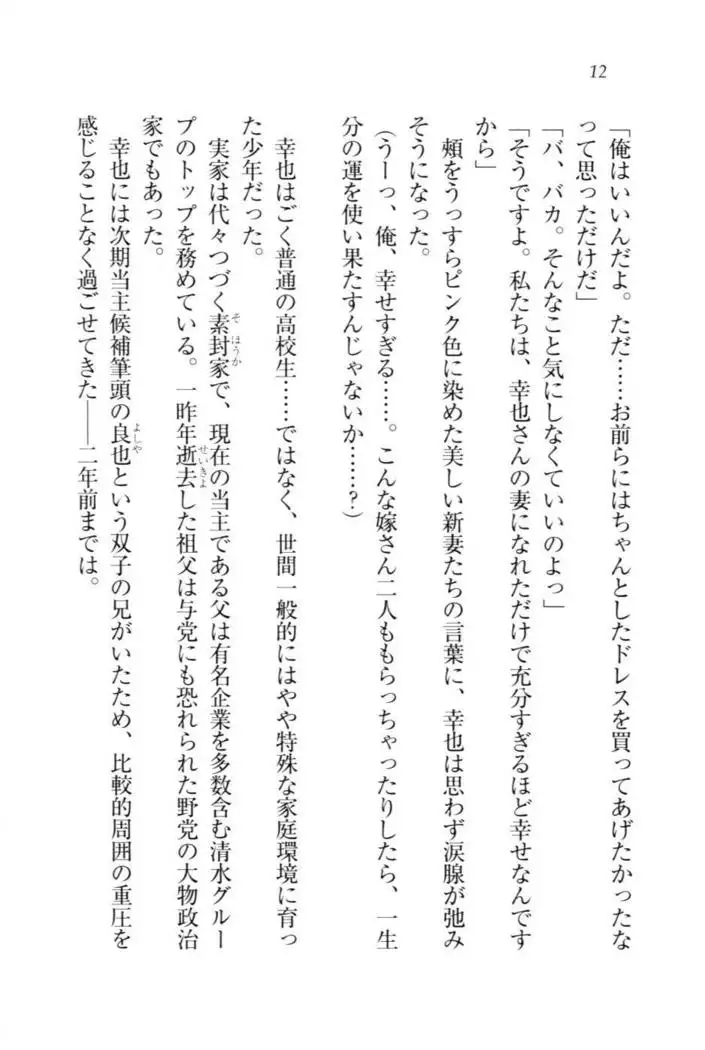 12
「俺はいいんだよ。ただ……お前らにはちゃんとしたドレスを買ってあげたかったな
って思っただけだ」
「バ、バカ。そんなこと気にしなくていいのよっ」
「そうですよ。私たちは、幸也さんの妻になれただけで充分すぎるほど幸せなんです
から」
頬をうっすらピンク色に染めた美しい新妻たちの言葉に、幸也は思わず涙腺が弛み
そうになった。
(うーっ、俺、幸せすぎる……。こんな嫁さん二人ももらっちゃったりしたら、一生
分の運を使い果たすんじゃないか……?)
幸也はごく普通の高校生……ではなく、世間一般的にはやや特殊な家庭環境に育っ
た少年だった。
実家は代々つづく素封家で、現在の当主である父は有名企業を多数含む清水グルー
プのトップを務めている。一昨年逝去した祖父は与党にも恐れられた野党の大物政治
家でもあった。
幸也には次期当主候補筆頭の良也という双子の兄がいたため、比較的周囲の重圧を
感じることなく過ごせてきた——二年前までは。
そほうか
せいきよ
よしや